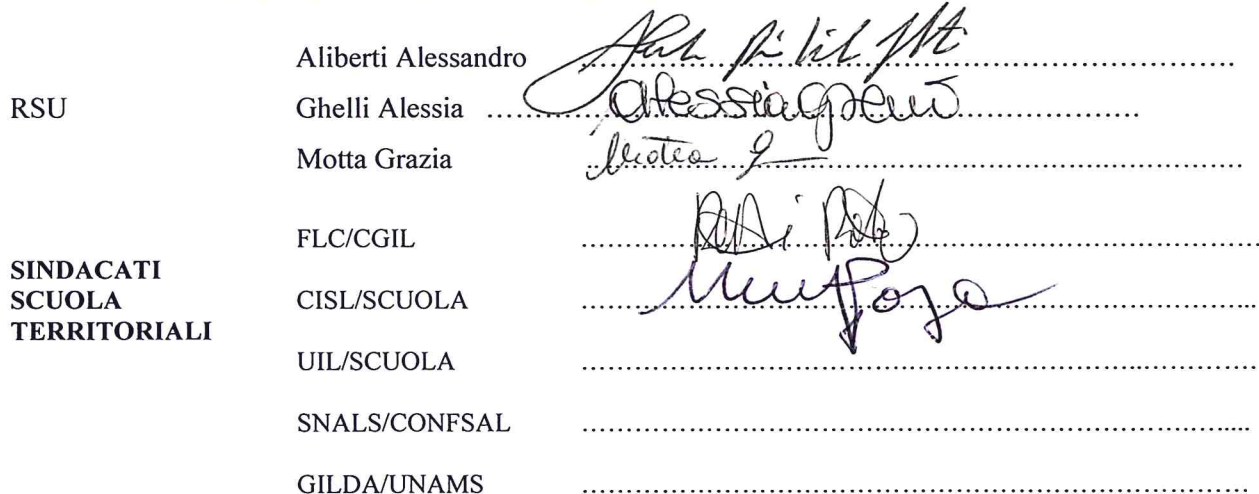 Aliberti Alessandro ..........
RSU Ghelli Alessia .......... Alessia Ghelli
Motta Grazia .......... Motta G
FLC/CGIL ..........
SINDACATI
SCUOLA
TERRITORIALI
CISL/SCUOLA ..........
UIL/SCUOLA ..........
SNALS/CONFSAL ..........
GILDA/UNAMS ..........